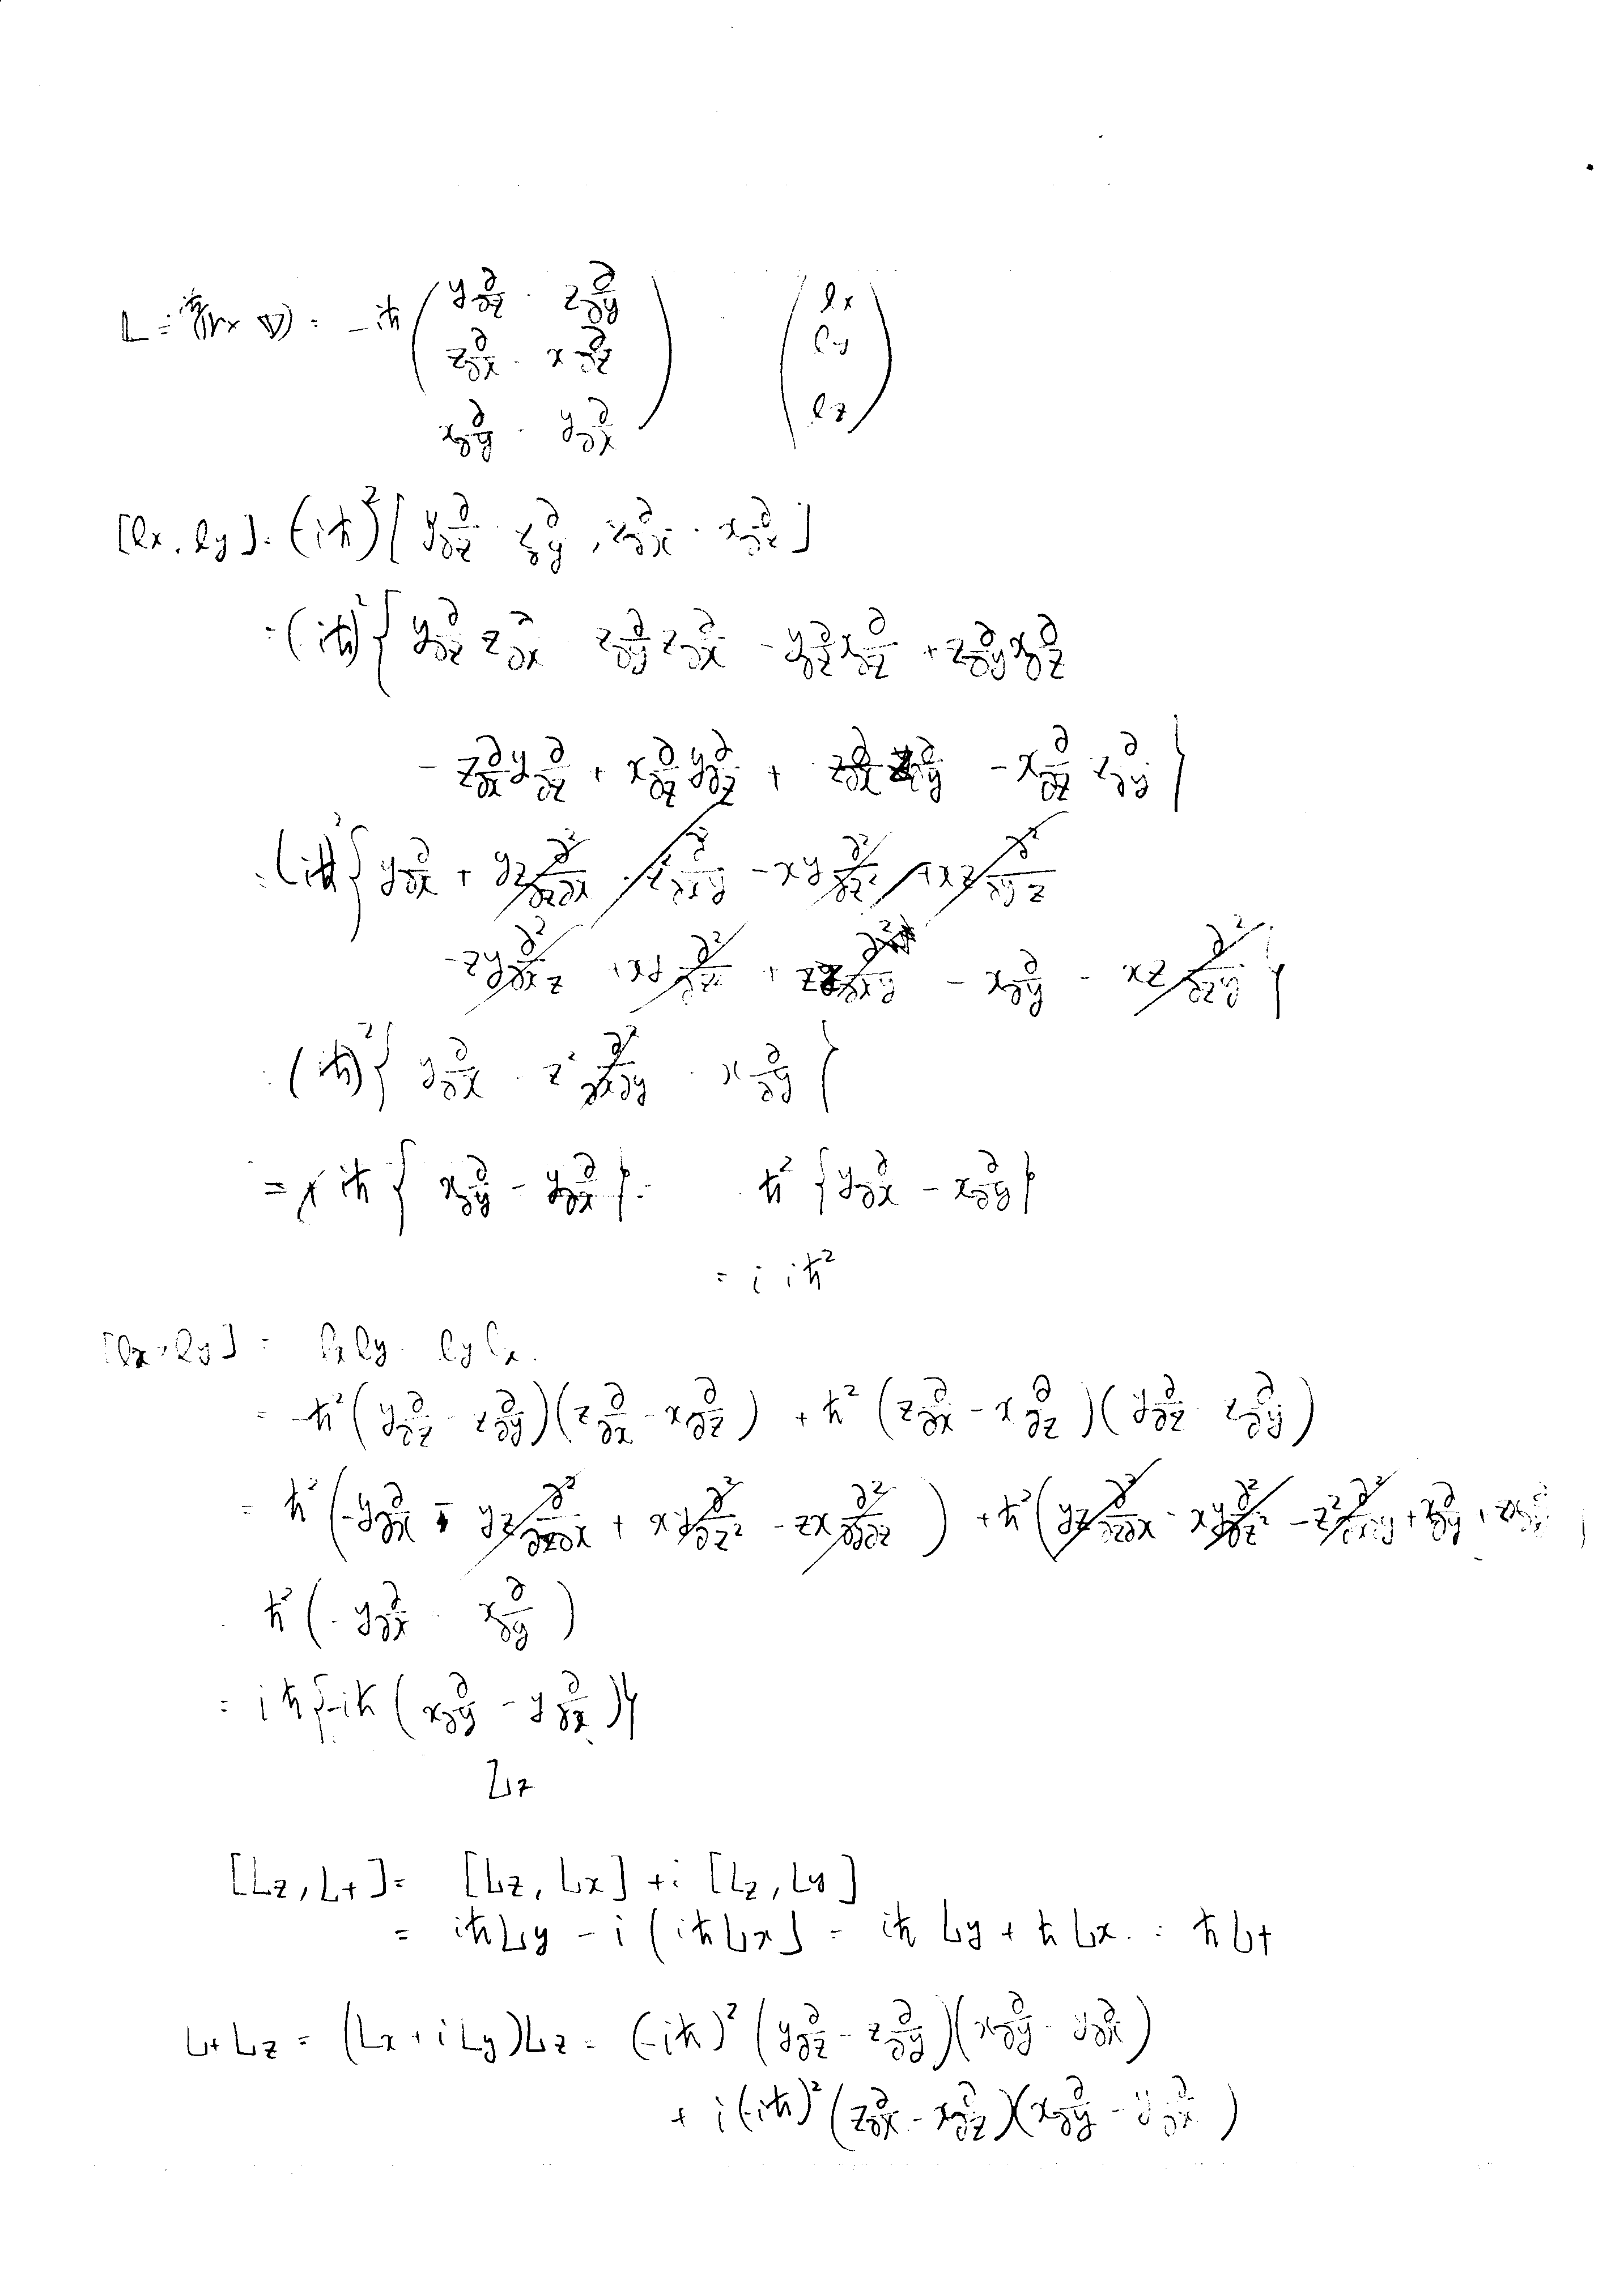 L = ħ/i (r × ∇) = -iħ ( y ∂/∂z - z ∂/∂y   z ∂/∂x - x ∂/∂z   x ∂/∂y - y ∂/∂x )   ( lx ly lz )
[lx, ly] = (-iħ)² [ y ∂/∂z - z ∂/∂y , z ∂/∂x - x ∂/∂z ]
= (iħ)² { y ∂/∂z z ∂/∂x - z ∂/∂y z ∂/∂x - y ∂/∂z x ∂/∂z + z ∂/∂y x ∂/∂z
- z ∂/∂x y ∂/∂z + x ∂/∂z y ∂/∂z + z ∂/∂x z ∂/∂y - x ∂/∂z z ∂/∂y }
= (iħ)² { y ∂/∂x + yz ∂²/∂z∂x - z² ∂²/∂x∂y - xy ∂²/∂z² + xz ∂²/∂y∂z
- zy ∂²/∂x∂z + xy ∂²/∂z² + zz ∂²/∂x∂y - x ∂/∂y - xz ∂²/∂z∂y }
= (iħ)² { y ∂/∂x - z² ∂²/∂x∂y - x ∂/∂y }
= iħ { x ∂/∂y - y ∂/∂x } =   ħ² { y ∂/∂x - x ∂/∂y }
= i iħ²
[lx, ly] = lx ly - ly lx
= -ħ² ( y ∂/∂z - z ∂/∂y )( z ∂/∂x - x ∂/∂z ) + ħ² ( z ∂/∂x - x ∂/∂z )( y ∂/∂z - z ∂/∂y )
= ħ² ( -y ∂/∂x - yz ∂²/∂z∂x + xy ∂²/∂z² - zx ∂²/∂y∂z ) + ħ² ( yz ∂²/∂z∂x - xy ∂²/∂z² - z² ∂²/∂x∂y + x ∂/∂y + zx
ħ² ( - y ∂/∂x - x ∂/∂y )
= iħ { -iħ ( x ∂/∂y - y ∂/∂x ) }
Lz
[Lz, L+] = [Lz, Lx] + i [Lz, Ly]
= iħLy - i (iħLx) = iħ Ly + ħ Lx = ħ L+
L+Lz = (Lx + iLy)Lz = (-iħ)² ( y ∂/∂z - z ∂/∂y )( x ∂/∂y - y ∂/∂x )
+ i (-iħ)² ( z ∂/∂x - x ∂/∂z )( x ∂/∂y - y ∂/∂x )